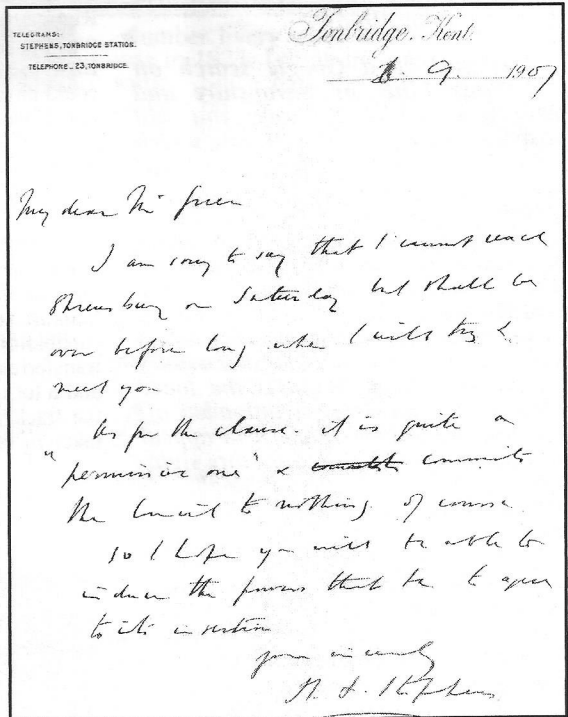 TELEGRAMS:
STEPHENS, TONBRIDGE STATION.
TELEPHONE _ 23, TONBRIDGE.
Tonbridge. Kent.
9. 1907
My dear Mr Green
I am sorry to say that I cannot reach
Shrewsbury on Saturday but shall be
over before long when I will try &
meet you
As for the clause. it is quite a
"permissive one" & commits
the Council to nothing of course
so I hope you will be able to
induce the powers that be to agree
to its insertion
yours sincerely
H. F. Stephens